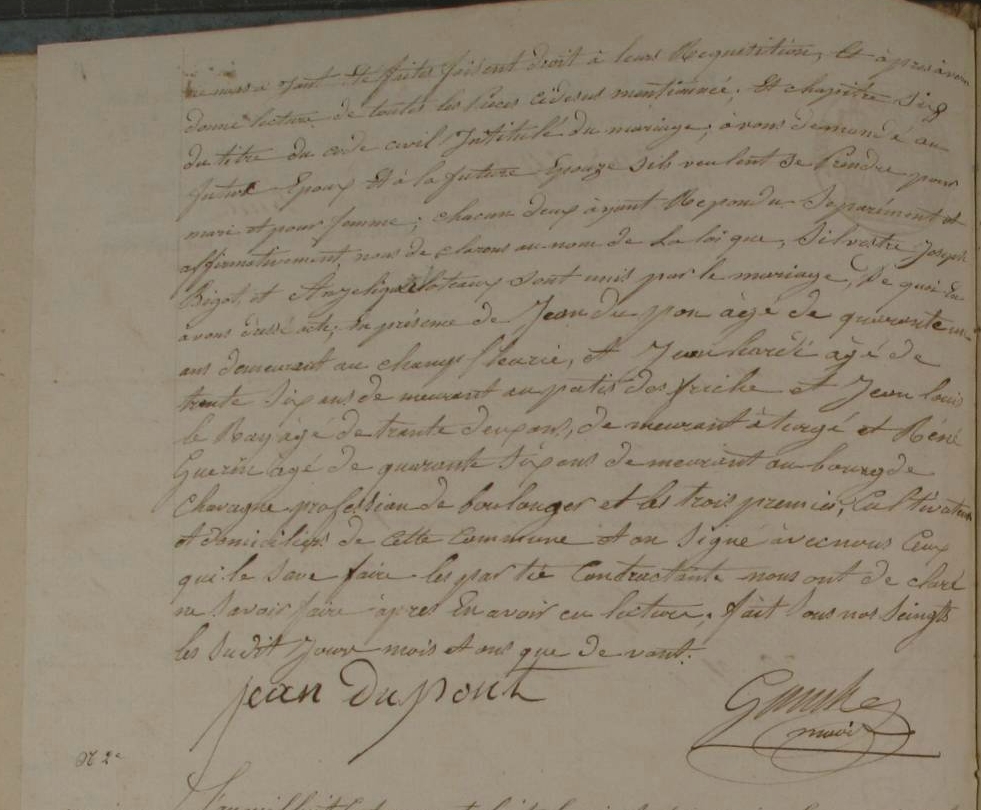 faites faisant droit à leurs Requetition, Et àpres àvoir
donné lecture de toutes les Pieces cidesus mentionnée, Et chapitre Six
du titre du code civil Intitulé du mariage, àvons demandé au
futur Epoux Et à la future Epouze Sils veulent Se Prendre pour
mari et pour femme; chacun deux àyant Repondu Separément et
affirmativement, nous de clarons au nom de La loi que, Silvestre Joseph
Bigot et Angelique loteaux Sont unis par le mariage, De quoi En
avons dressé acte, En présence de Jean du pon àgé de quarante un
ans demeurant au champ fleurie, et Jean hardé àgé de
trente Six ans de meurant au patis des friche et Jean louis
le Ray àgé de trante deux ans, de meurant à turgé et Réné
Guerin àgé de quarante Six ans demeurant au bourg de
Chavagne profession de boulanger et les trois premier, Cultivateur
et domiciliers de Cette Commune et on Signé àvec nous Ceux
qui le Save faire les partie Contractante nous ont de claré
ne Savoir faire àpres En avoir eu lecture. fait Sous nos Seingts
les Sudit Jour mois et ans que de vant.
jean Dupont
maire
N 2e